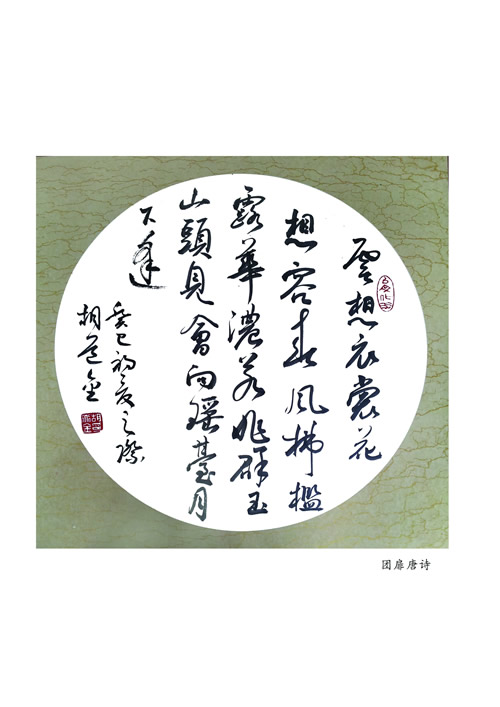 雲想衣裳花
想容春風拂檻
露華濃若非群玉
山頭見會向瑤臺月
下逢
癸巳初夏之際
胡金
团扉唐诗